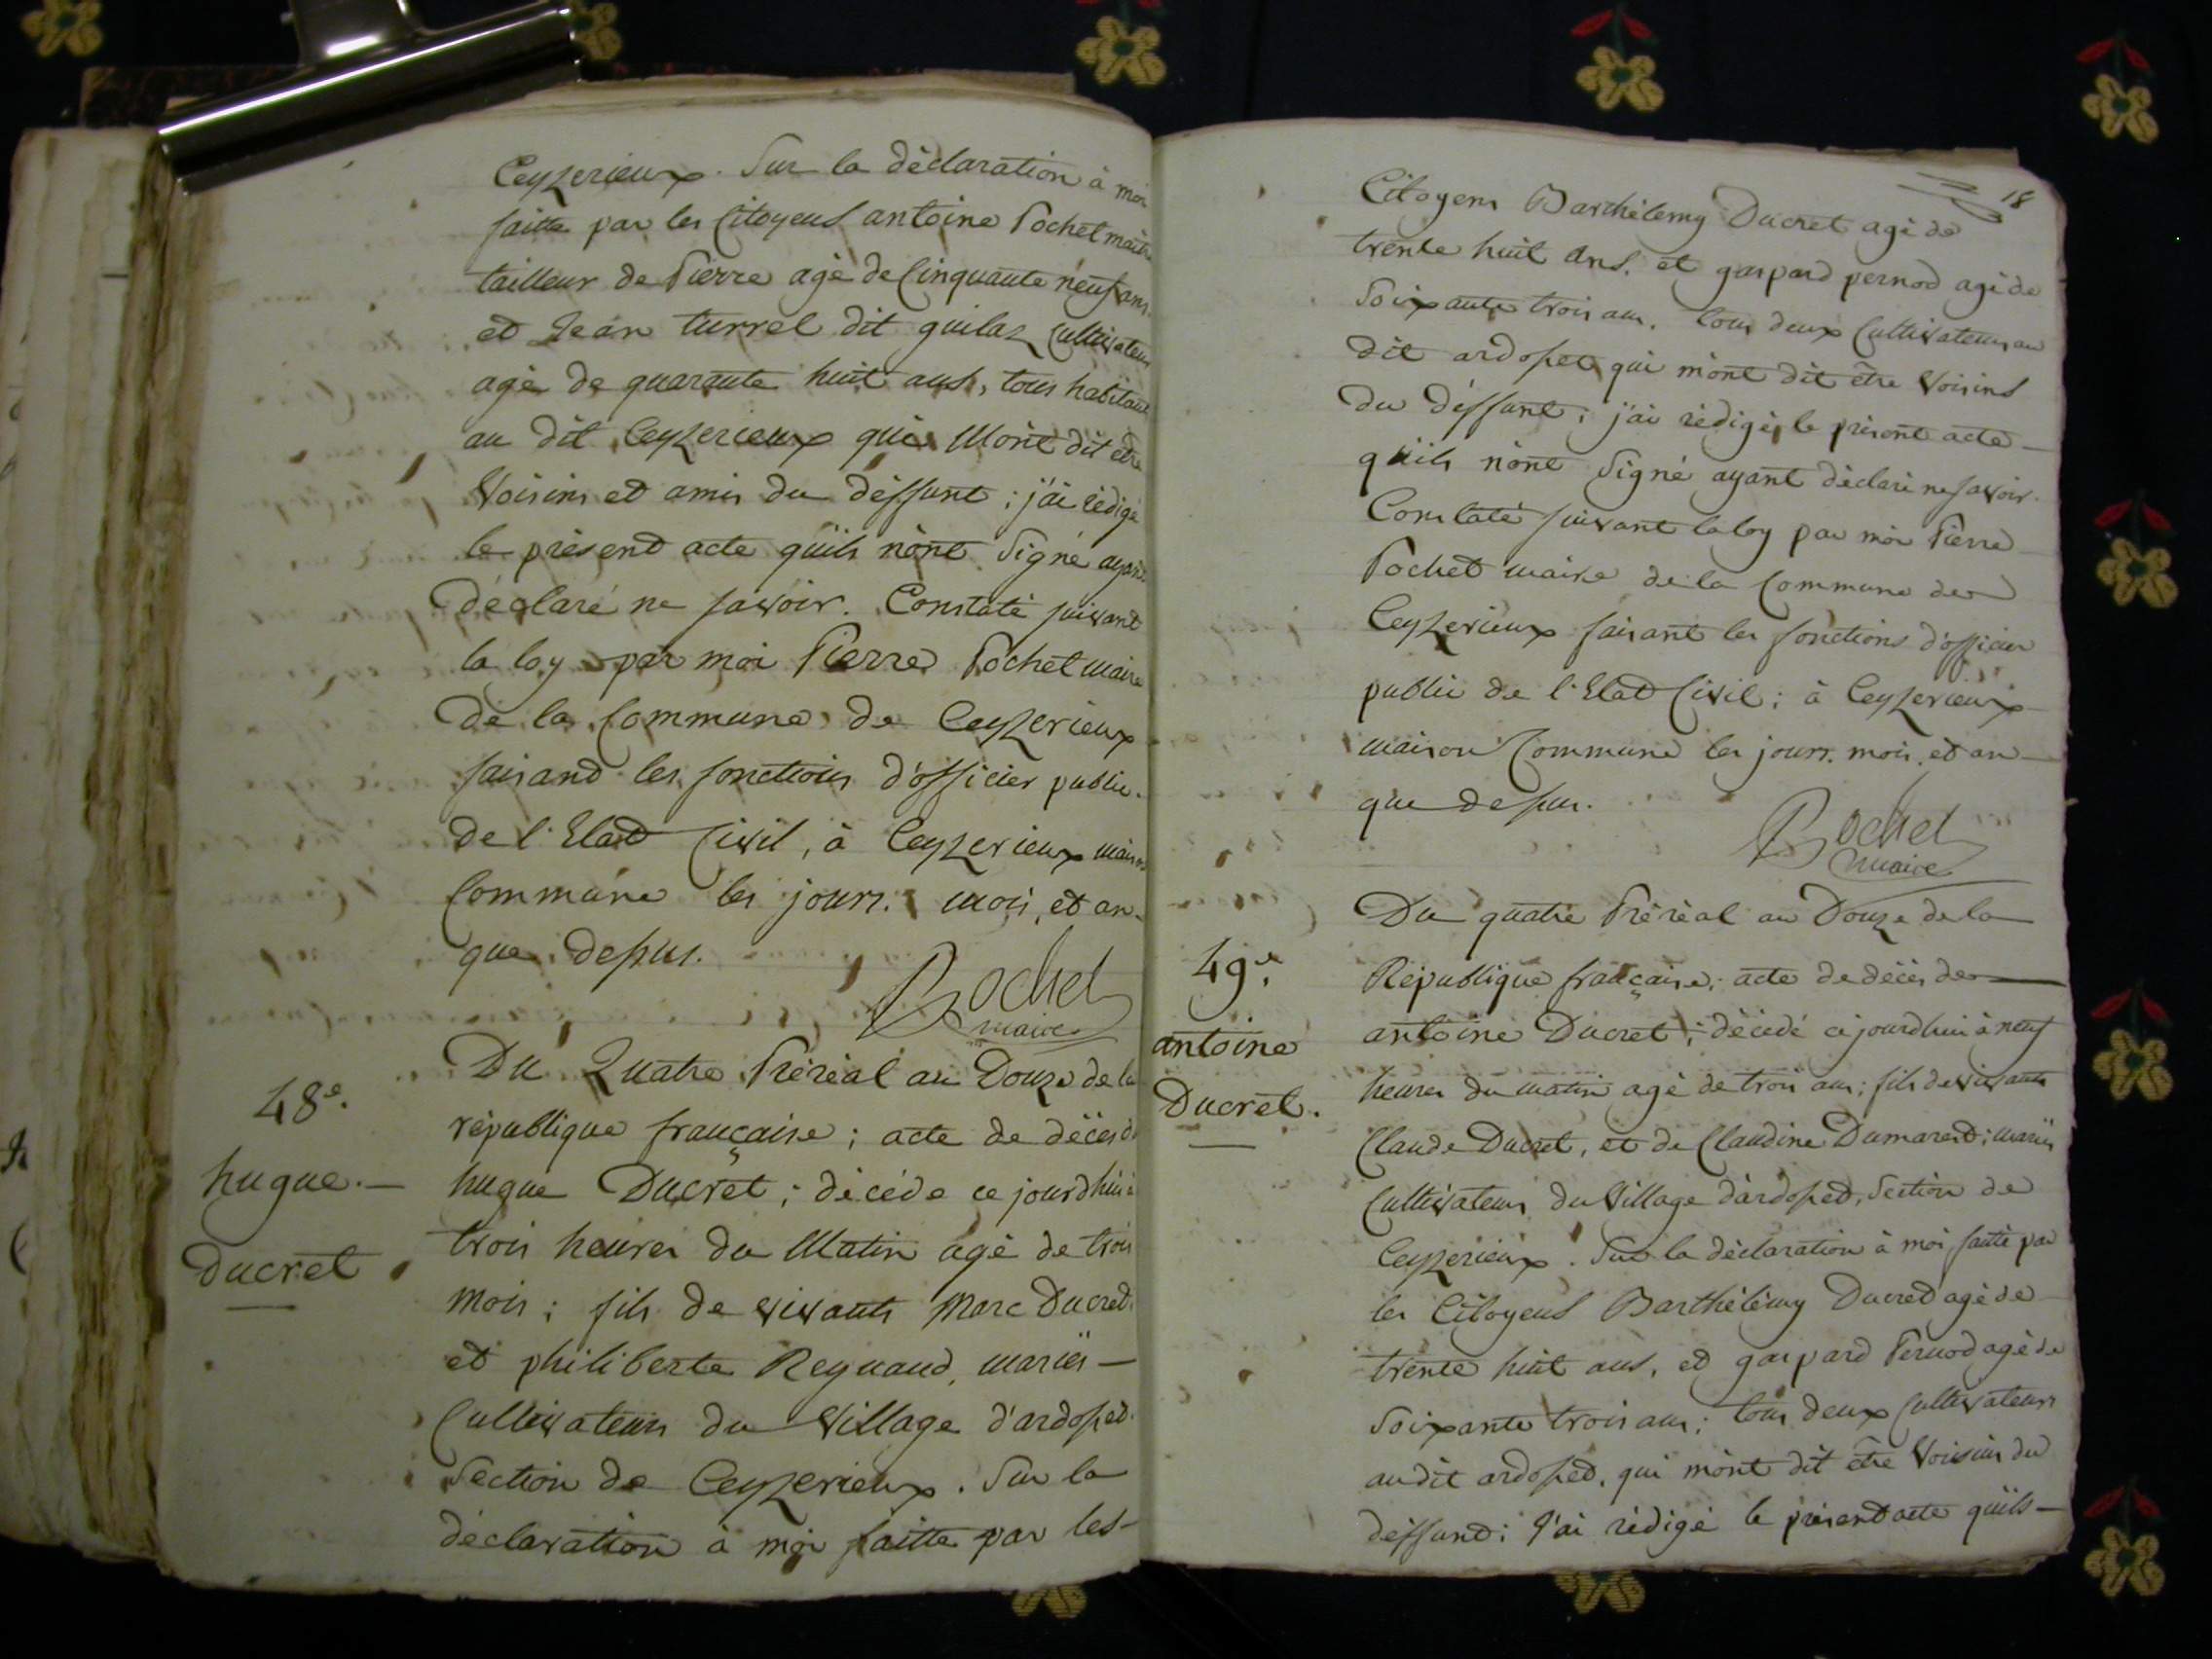 Ceyzerieux. Sur la déclaration à moi
faitte par les Citoyens antoine Pochet maitre
tailleur de Pierre agé de Cinquante neuf ans.
et Jean turrel dit guilaz Cultivateur
agé de quarante huit ans, tous habitant
au dit Ceyzerieux qui M'ont dit etre
Voisins et amis du déffunt ; j'ai rédigé
le présend acte qu'ils n'ont Signé ayant
déclaré ne savoir. Constaté suivant
la loy par moi Pierre Pochet maire
de la Commune de Ceyzerieux
faisand les fonctions d'officier public
de l'Etad Civil, à Ceyzerieux maison
Commune les jours. mois, et an
que dessus.
Pochet
maire
48e.
hugue.
Ducret
Du Quatre Préréal an Douze de la
république française ; acte de décès de
hugue Ducret ; décéde ce jourdhui à
trois heures du Matin agé de trois
mois ; fils de vivants Marc Ducret
et philiberte Reynaud, mariés
Cultivateurs du Village d'ardosset.
Section de Ceyzerieux. Sur la
déclaration à moi faitte par les
18
Citoyens Barthélemy Ducret agé de
trente huit ans. et gaspard pernod agé de
Soixante trois ans. tous deux Cultivateurs au
dit ardosset qui m'ont dit être Voisins
du déffunt ; j'ai rédigé le présent acte
qu'ils n'ont Signé ayant déclaré ne savoir.
Constaté suivant la loy par moi Pierre
Pochet maire de la Commune de
Ceyzerieux faisant les fonctions d'officier
public de l'Etad Civil ; à Ceyzerieux
maison Commune les jours. mois, et an
que dessus.
Pochet
maire
49e.
antoine
Ducret.
Du quatre Préréal an Douze de la
République française ; acte de décès de
antoine Ducret ; décédé ce jourdhui à neuf
heures du matin agé de trois ans ; fils de vivants
Claude Ducret, et de Claudine Dumarest ; mariés
Cultivateurs du Village d'ardossed, Section de
Ceyzerieux. Sur la déclaration à moi faitte par
les Citoyens Barthélémy Ducred agé de
trente huit ans, et gaspard Pernod agé de
Soixante trois ans ; tous deux Cultivateurs
audit ardossed, qui m'ont dit être Voisins du
déffund ; J'ai rédigé le présend acte qu'ils